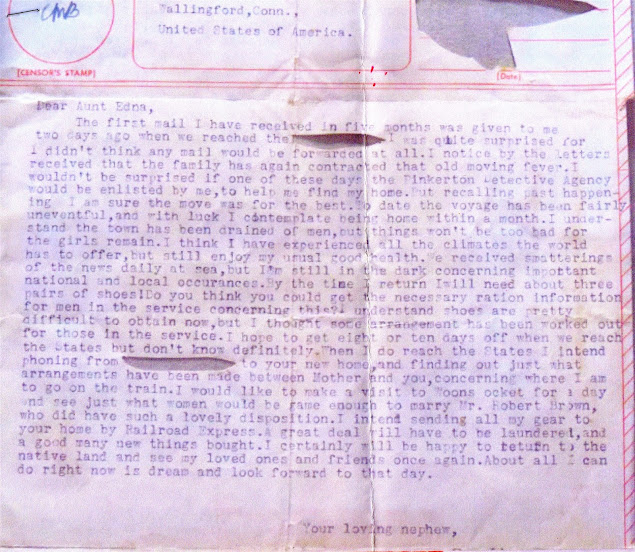 CMB
[CENSOR'S STAMP]
Wallingford,Conn.,
United States of America.
(Date)
Dear Aunt Edna,
The first mail I have received in five months was given to me
two days ago when we reached the I was quite surprised for
I didn't think any mail would be forwarded at all.I notice by the letters
received that the family has again contracted that old moving fever.I
wouldn't be surprised if one of these days the Pinkerton Detective Agency
would be enlisted by me,to help me find my home.But recalling past happen-
ing I am sure the move was for the best.To date the voyage has been fairly
uneventful,and with luck I contemplate being home within a month.I under-
stand the town has been drained of men,but things won't be too bad for
the girls remain.I think I have experienced all the climates the world
has to offer,but still enjoy my usual good health.We received smatterings
of the news daily at sea,but I'm still in the dark concerning important
national and local occurances.By the time I return I will need about three
pairs of shoes!Do you think you could get the necessary ration information
for men in the service concerning this?I understand shoes are pretty
difficult to obtain now,but I thought some arrangement has been worked out
for those in the service.I hope to get eight or ten days off when we reach
the States but don't know definitely.When I do reach the States I intend
phoning from to your new home,and finding out just what
arrangements have been made between Mother and you,concerning where I am
to go on the train.I would like to make a visit to Woons ocket for a day
and see just what women would be game enough to marry Mr. Robert Brown,
who did have such a lovely disposition.I intend sending all my gear to
your home by Railroad Express.A great deal will have to be laundered,and
a good many new things bought.I certainly will be happy to return to the
native land and see my loved ones and friends once again.About all I can
do right now is dream and look forward to that day.
Your loving nephew,